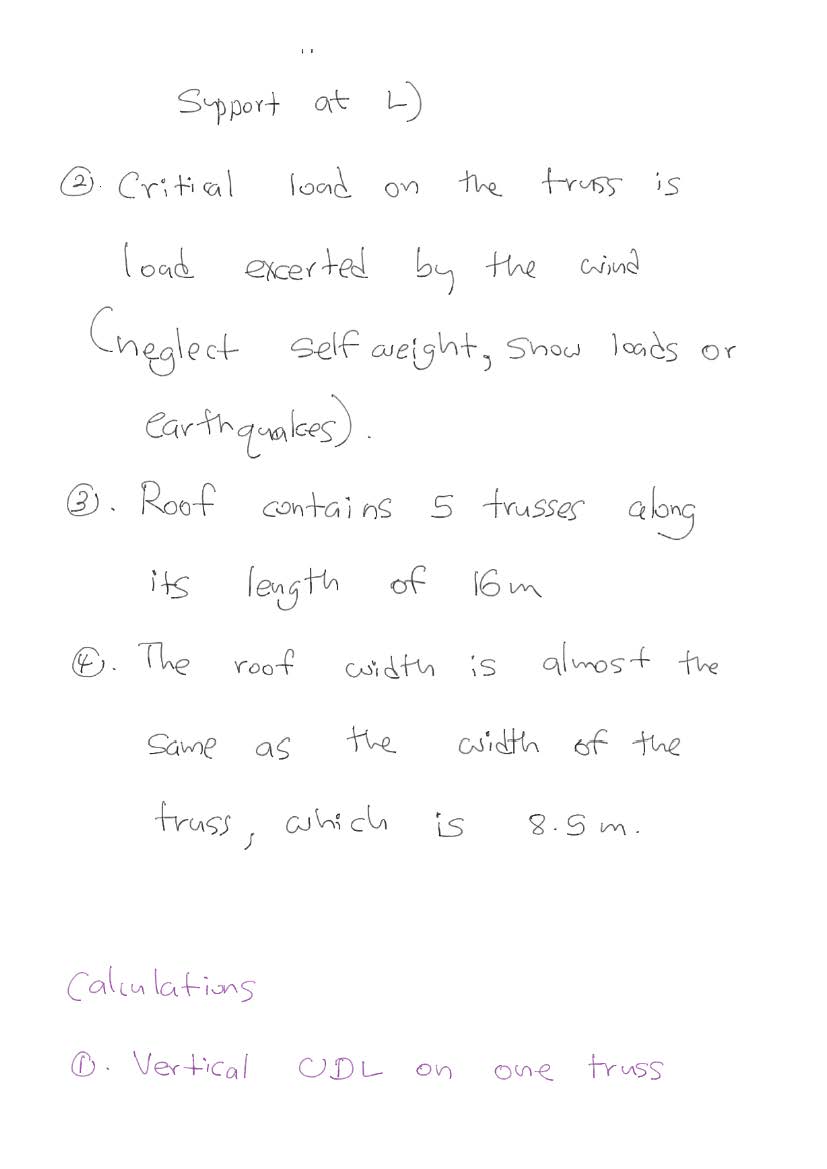 Support at L)
②. Critical load on the truss is
load excerted by the wind
(neglect self weight, snow loads or
earthquakes).
③. Roof contains 5 trusses along
its length of 16m
④. The roof width is almost the
same as the width of the
truss, which is 8.5m.
Calculations
①. Vertical UDL on one truss